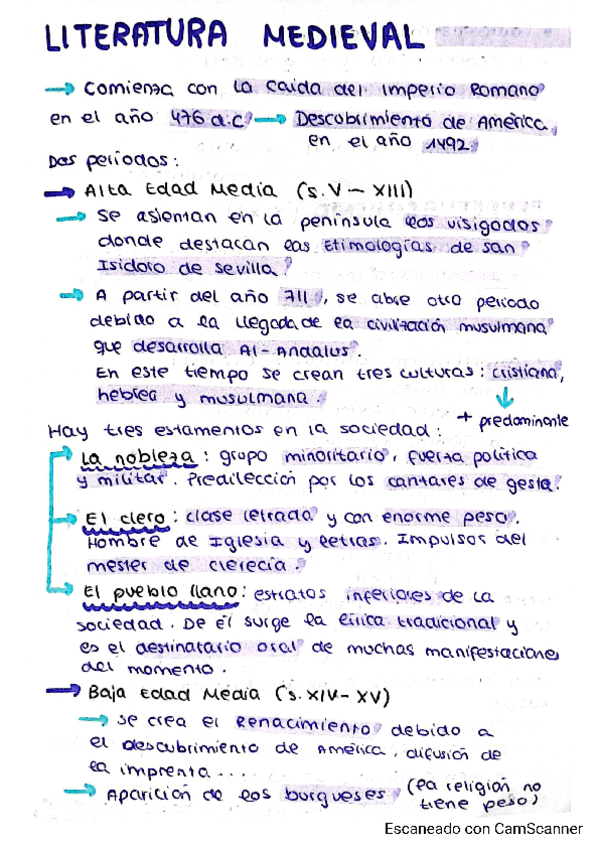 LITERATURA MEDIEVAL
→ Comienza con la caída del Imperio Romano
en el año 476 d.C → Descubrimiento de América
en el año 1492
Dos períodos:
→ Alta Edad Media (s. V - XIII)
→ Se asientan en la península los visigodos
donde destacan las Etimologías de san
Isidoro de Sevilla.
→ A partir del año 711, se abre otro periodo
debido a la llegada de la civilización musulmana
que desarrolla Al-Andalus.
En este tiempo se crean tres culturas: cristiana,
hebrea y musulmana.
+ predominante
Hay tres estamentos en la sociedad:
La nobleza: grupo minoritario, fuerza política
y militar. Predilección por los cantares de gesta.
El clero: clase letrada y con enorme peso.
Hombre de Iglesia y letras. Impulsor del
mester de clerecía.
El pueblo llano: estratos inferiores de la
sociedad. De él surge la lírica tradicional y
es el destinatario oral de muchas manifestaciones
del momento.
→ Baja Edad Media (s. XIV - XV)
→ Se crea el Renacimiento debido a
el descubrimiento de América, difusión de
la imprenta....
→ Aparición de los burgueses (la religión no
tiene peso)
Escaneado con CamScanner